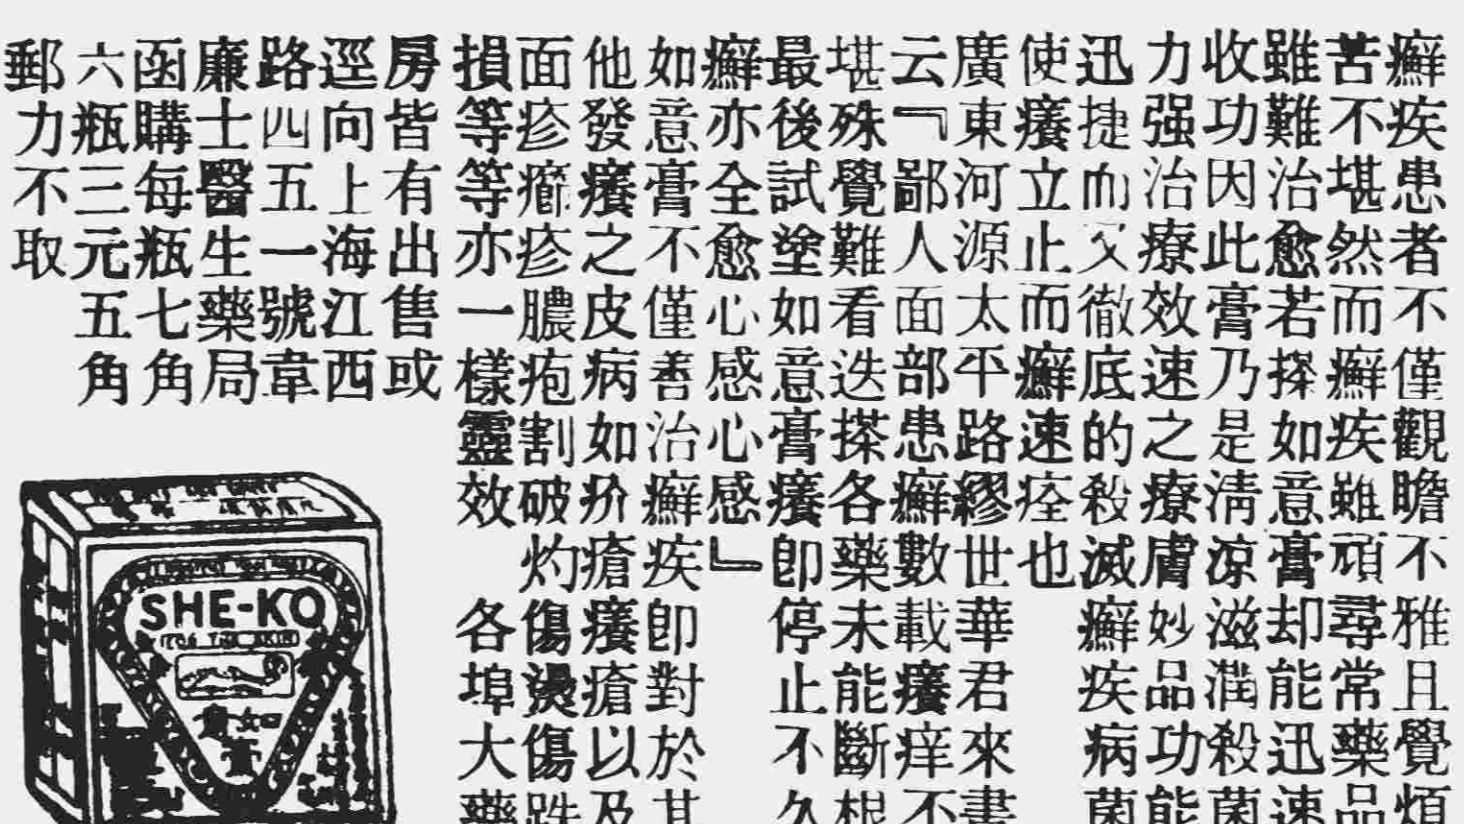 癬疾患者不僅觀瞻不雅且覺煩
苦不堪然而癬疾雖頑尋常藥品
雖難治愈若搽如意膏却能迅速
收功因此膏乃是清涼滋潤殺菌
力强治療效速之療膚妙品功能
迅捷而又徹底的殺滅癬疾病菌
使癢立止而癬速痊也
廣東河源太平路繆世華君來書
云『鄙人面部患癬數載癢痒不
堪殊覺難看迭搽各藥未能斷根
最後試塗如意膏癢卽停止不久
癬亦全愈心感心感』
如意膏不僅善治癬疾卽對於其
他發癢之皮病如疥瘡癢瘡以及
面疹癤疹膿疱割破灼傷燙傷跌
損等等亦一樣靈效
各埠大藥
房皆有出售或
逕向上海江西
路四五一號韋
廉士醫生藥局
函購每瓶七角
六瓶三元五角
郵力不取
SHE-KO
FOR THE SKIN
如意膏